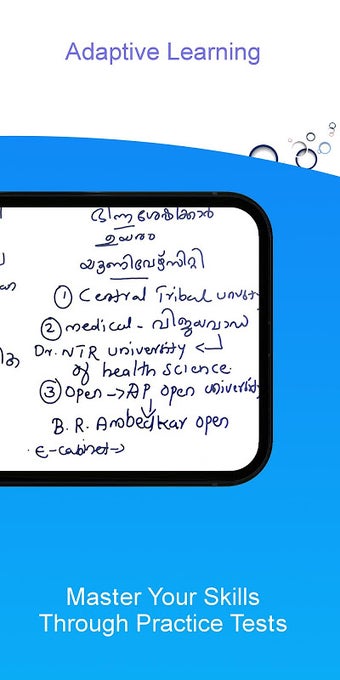 Adaptive Learning
ഭിന്നശേഷിക്കാർ
ഉയരം
യൂണിവേഴ്സിറ്റി
① Central Tribal
② medical - വിജയവാഡ
Dr. NTR university ↵
of health science
③ Open → AP open university
B. R. Ambedkar open
E-cabinet →
Master Your Skills
Through Practice Tests